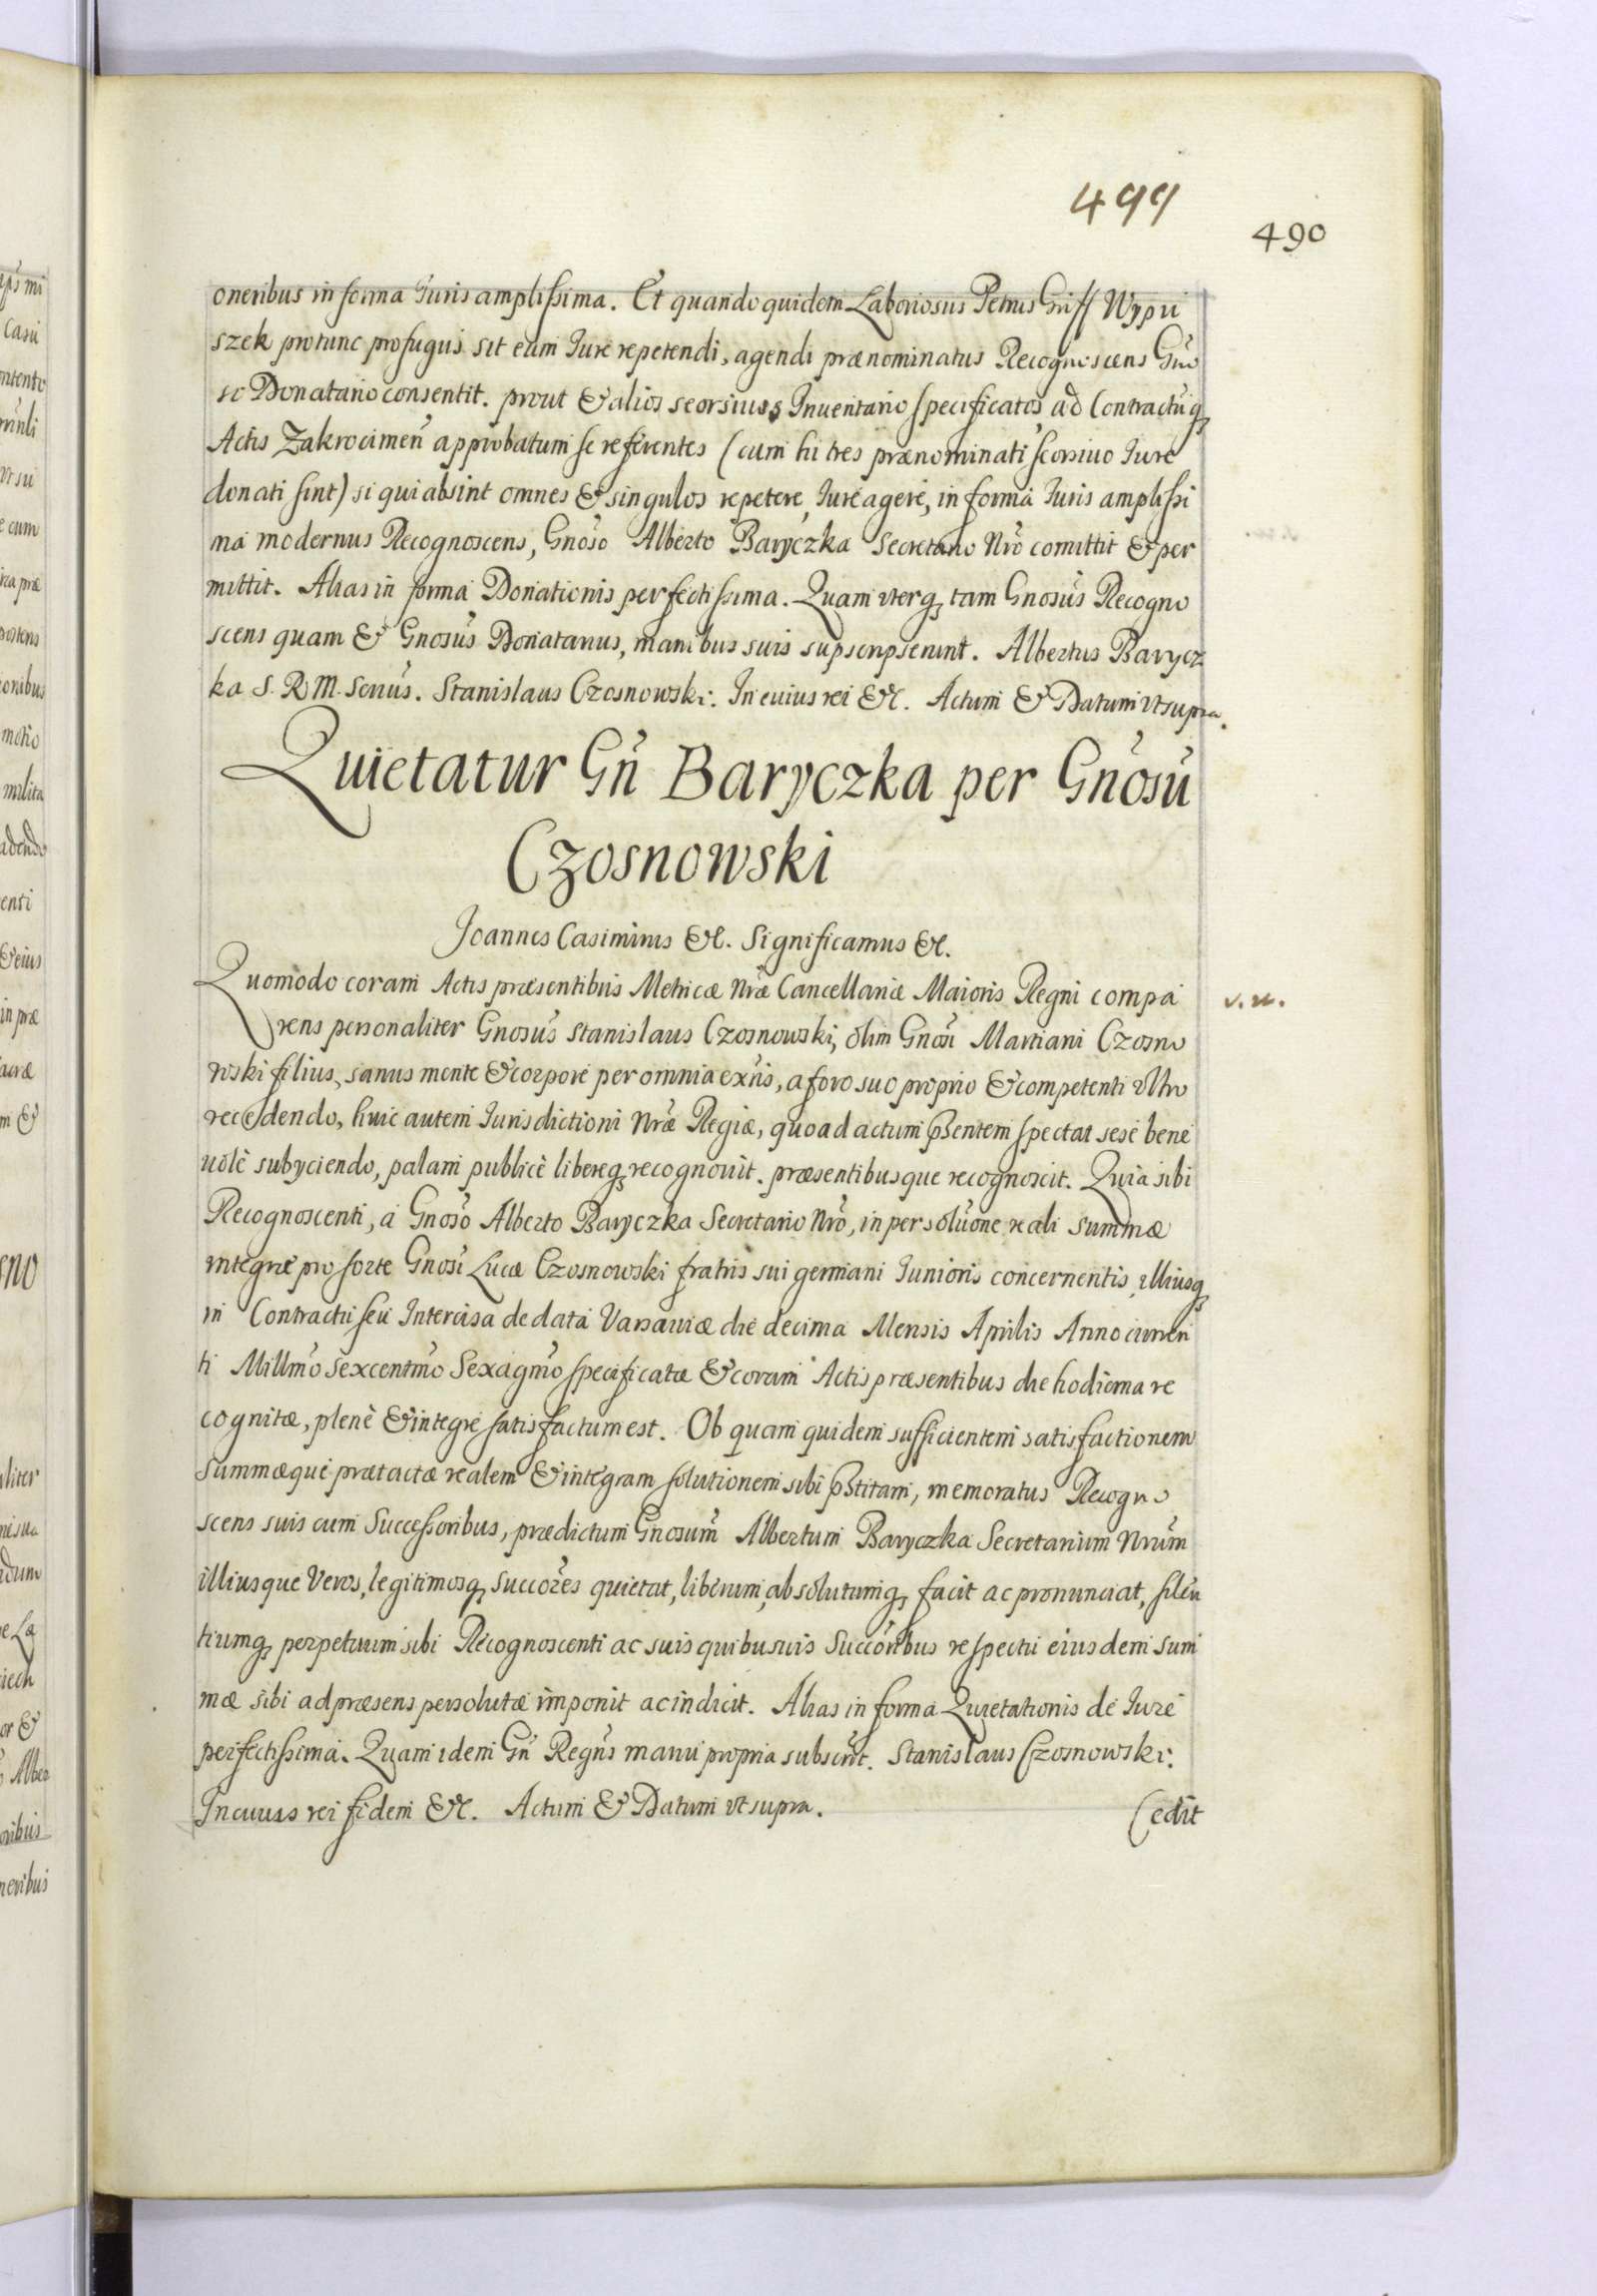 499
490
oneribus in forma Iuris amplissima. Et quandoquidem Laboriosus Petrus Griff Wypii
szek protunc profugus sit eum Iure repetendi, agendi prænominatus Recognoscens Gno
so Donatario consentit. prout & alios seorsiuss Inuentario specificatos ad Contractuq
Actis Zakrocimen approbatum se referentes (cum hi tres prænominati seorsiuo Iure
donati sint) si qui absint omnes & singulos repetere, Iure agere, in forma Iuris amplissi
ma modernus Recognoscens, Gnoso Alberto Baryczka Secretario Nro comittit & per
mittit. Alias in forma Donationis perfectissima. Quam vterq tam Gnosus Recogno
scens quam & Gnosus Donatarius, manibus suis supscripserunt. Albertus Barycz
ka S. R. M. Scrius. Stanislaus Czosnowski. In cuius rei &c. Actum & Datum vt supra.
Quietatur Gn Baryczka per Gnosu
Czosnowski
Joannes Casimirus &c. Significamus &c.
Quomodo coram Actis præsentibus Metricæ Nræ Cancellariæ Maioris Regni compa
v. n.
rens personaliter Gnosus Stanislaus Czosnowski, olim Gnosi Martiani Czosno
wski filius, sanus mente & corpore per omnia exns, a foro suo proprio & competenti vltro
recedendo, huic autem Iurisdictioni Nræ Regiæ, quoad actum psentem spectat sese bene
uole subyciendo, palam publicè libereq recognouit. præsentibusque recognoscit. Quia sibi
Recognoscenti, a Gnoso Alberto Baryczka Secretario Nro, in persoluone reali summæ
integræ pro sorte Gnosi Lucæ Czosnowski fratris sui germani Iunioris concernentis, illiusq
in Contractu seu Intercisa de data Varsauiæ die decima Mensis Aprilis Anno curren
ti Millmo sexcentmo Sexagmo specificatæ & coram Actis præsentibus die hodierna re
cognitæ, plenè & integre satisfactum est. Ob quam quidem sufficientem satisfactionem
summæque prætactæ realem & integram solutionem sibi pstitam, memoratus Recogno
scens suis cum Successoribus, prædictum Gnosum Albertum Baryczka Secretarium Nrum
illiusque Veros, legitimosq succores quietat, liberum, absolutumq facit ac pronunciat, silen
tiumq perpetuum sibi Recognoscenti ac suis quibusuis Succoribus respectu eiusdem sum
mæ sibi ad præsens persolutæ imponit ac indicit. Alias in forma Quietationis de Iure
perfectissima. Quam idem Gn Regns manu propria subscrit. Stanislaus Czosnowski.
In cuius rei fidem &c. Actum & Datum vt supra.
Cedit